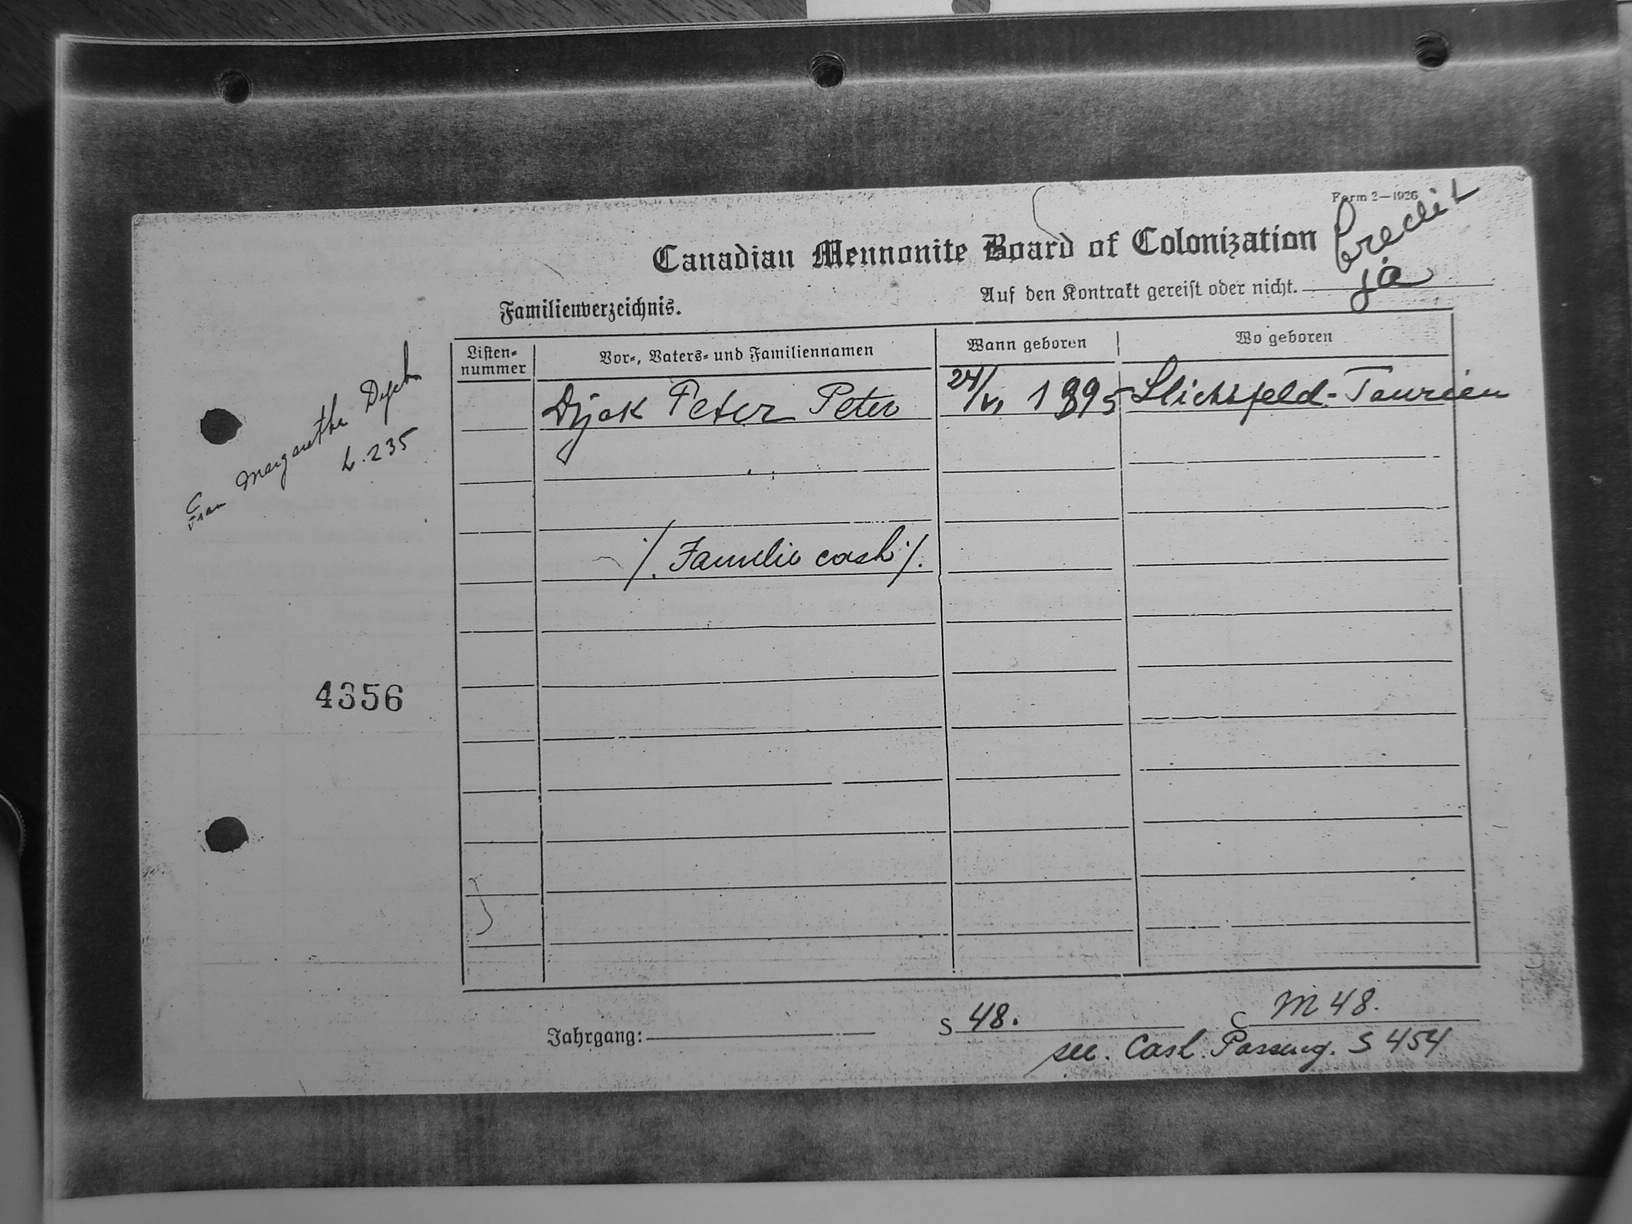 Form 2—1926
Credit
Canadian Mennonite Board of Colonization
Auf den Kontrakt gereist oder nicht. ja
Familienverzeichnis.
Listen-nummer Vor-, Vaters- und Familiennamen Wann geboren Wo geboren
Dyck Peter Peter 24/VI 1895 Slichtfeld-Taurien
Frau Margarethe Dyck
L. 235
/. Familie cash /.
4356
Jahrgang: S 48. C M 48.
see. Cash. Passeng. S 454